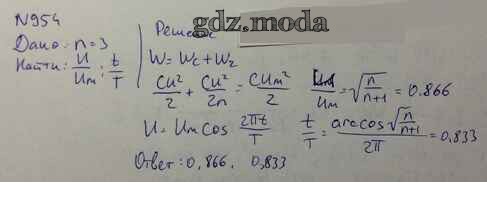 gdz.moda
N954
Дано: n=3
Найти: U/Um; t/T
Решение
W = Wc + W2
CU²/2 + CU²/2n = CUm²/2
U/Um = √(n/(n+1)) = 0.866
U = Um cos 2πt/T
t/T = arccos √(n/(n+1)) / 2π = 0,833
Ответ: 0,866. 0,833